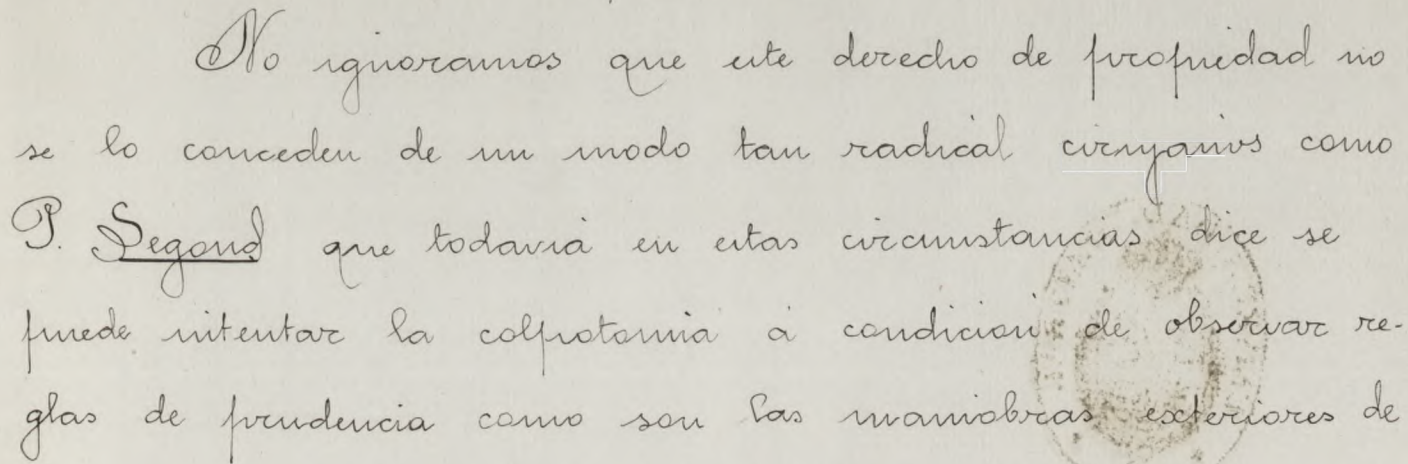 No ignoramos que este derecho de propiedad no
se lo conceden de un modo tan radical cirujanos como
P. Segond que todavia en estas circunstancias dice se
puede intentar la colpotomia á condicion de observar re-
glas de prudencia como son las maniobras exteriores de